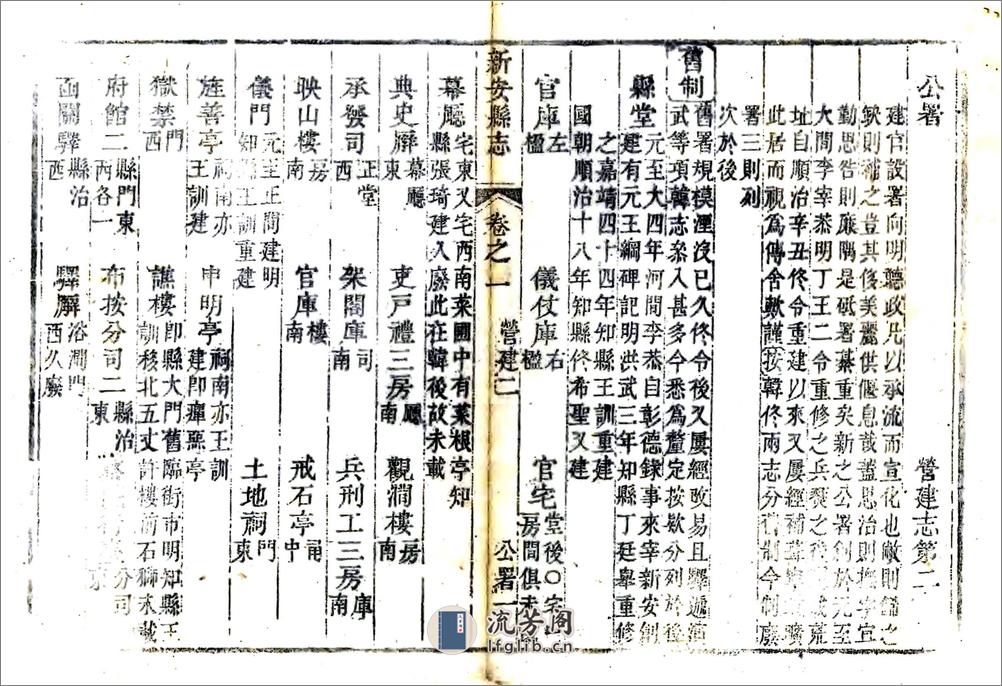 公署　營建志第二
建官設署向明聽政凡以承流而宣化也敝則餙之
欽則補之豈其侈美麗供偃息哉蓋思治則撫字宜
勤思告則廉隅是砥署綦重矣新之公署創於元至
大間李宰恭明丁王二令重修之兵燹之後城荒
址自順治辛丑佟令重建以來又屢經補葺
此居而視爲傳舍歟謹按韓佟兩志分舊制今制廢
署三則列
次於後
舊制
舊署規模湮沒已久佟令後又屢經攺易且驛遞
武等項韓志叅入甚多今悉爲釐定按欵分列於後
縣堂
元至大四年河間李恭自彰德錄事來宰新安創
建有元王綱碑記明洪武三年知縣丁廷舉重修
之嘉靖四十四年知縣王訓重建
國朝順治十八年知縣佟希聖又建
官庫 左楹　儀仗庫 右楹　官宅 堂後〇宅 房間俱未
新安縣志　卷之一　營建二　公署一
幕廳 宅東又宅西南菜園中有菜根亭知縣張琦建入廢此在韓後故未載
典史廨 幕廳東　吏戸禮三房 廳南　觀澗樓 房南
承發司 正堂西　架閣庫 司南　兵刑工三房 庫南
映山樓 房南　官庫 樓南　戒石亭 甬中
儀門 元至正間建明知縣王訓重建　土地祠 門東
旌善亭 祠南亦王訓建　申明亭 祠南亦王訓建即癉惡亭
獄禁 門西　譙樓 即縣大門舊臨街市明知縣王訓移北五丈許樓前石獅未載
府館二 縣門東西各一　布按分司二 縣治東　分司
函關驛 縣治西　驛廨 洛澗門西久廢
流芳阁
lfglib.cn